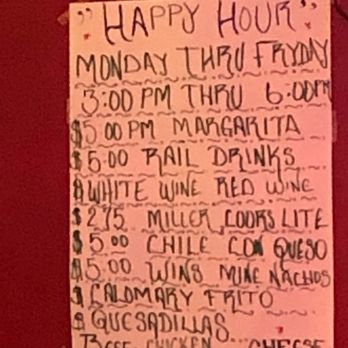 "HAPPY HOUR"
MONDAY THRU FRYDAY
3:00 PM THRU 6:00PM
$5 00 PM MARGARITA
$5.00 RAIL DRINKS
$WHITE WINE RED WINE
$275 MILLER COORS LITE
$5.00 CHILE CON QUESO
$5.00 WINS MINE NACHOS
$CALOMARY FRITO
$QUESADILLAS
BEEF CHICKEN CHEESE